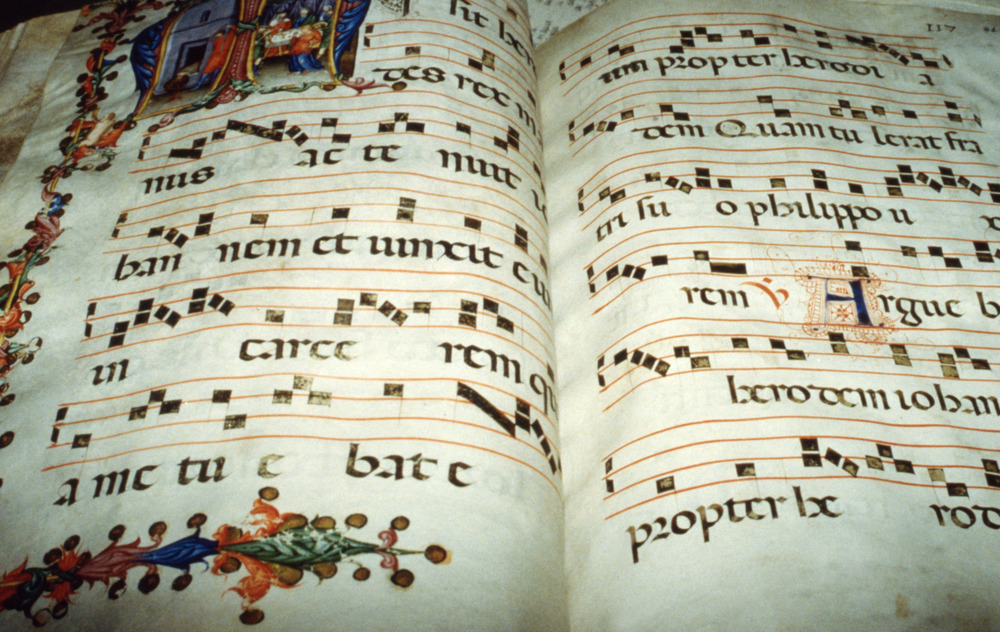 sit he
des rex m
nus ac te nuit
ban nem et uinxit eu
in carce rem q
a me tu e bat e
117
um propter herodi a
dem Quam tu lerat fra
tri su o philippo u x
rem Argue b
herodem iohan
propter he rod